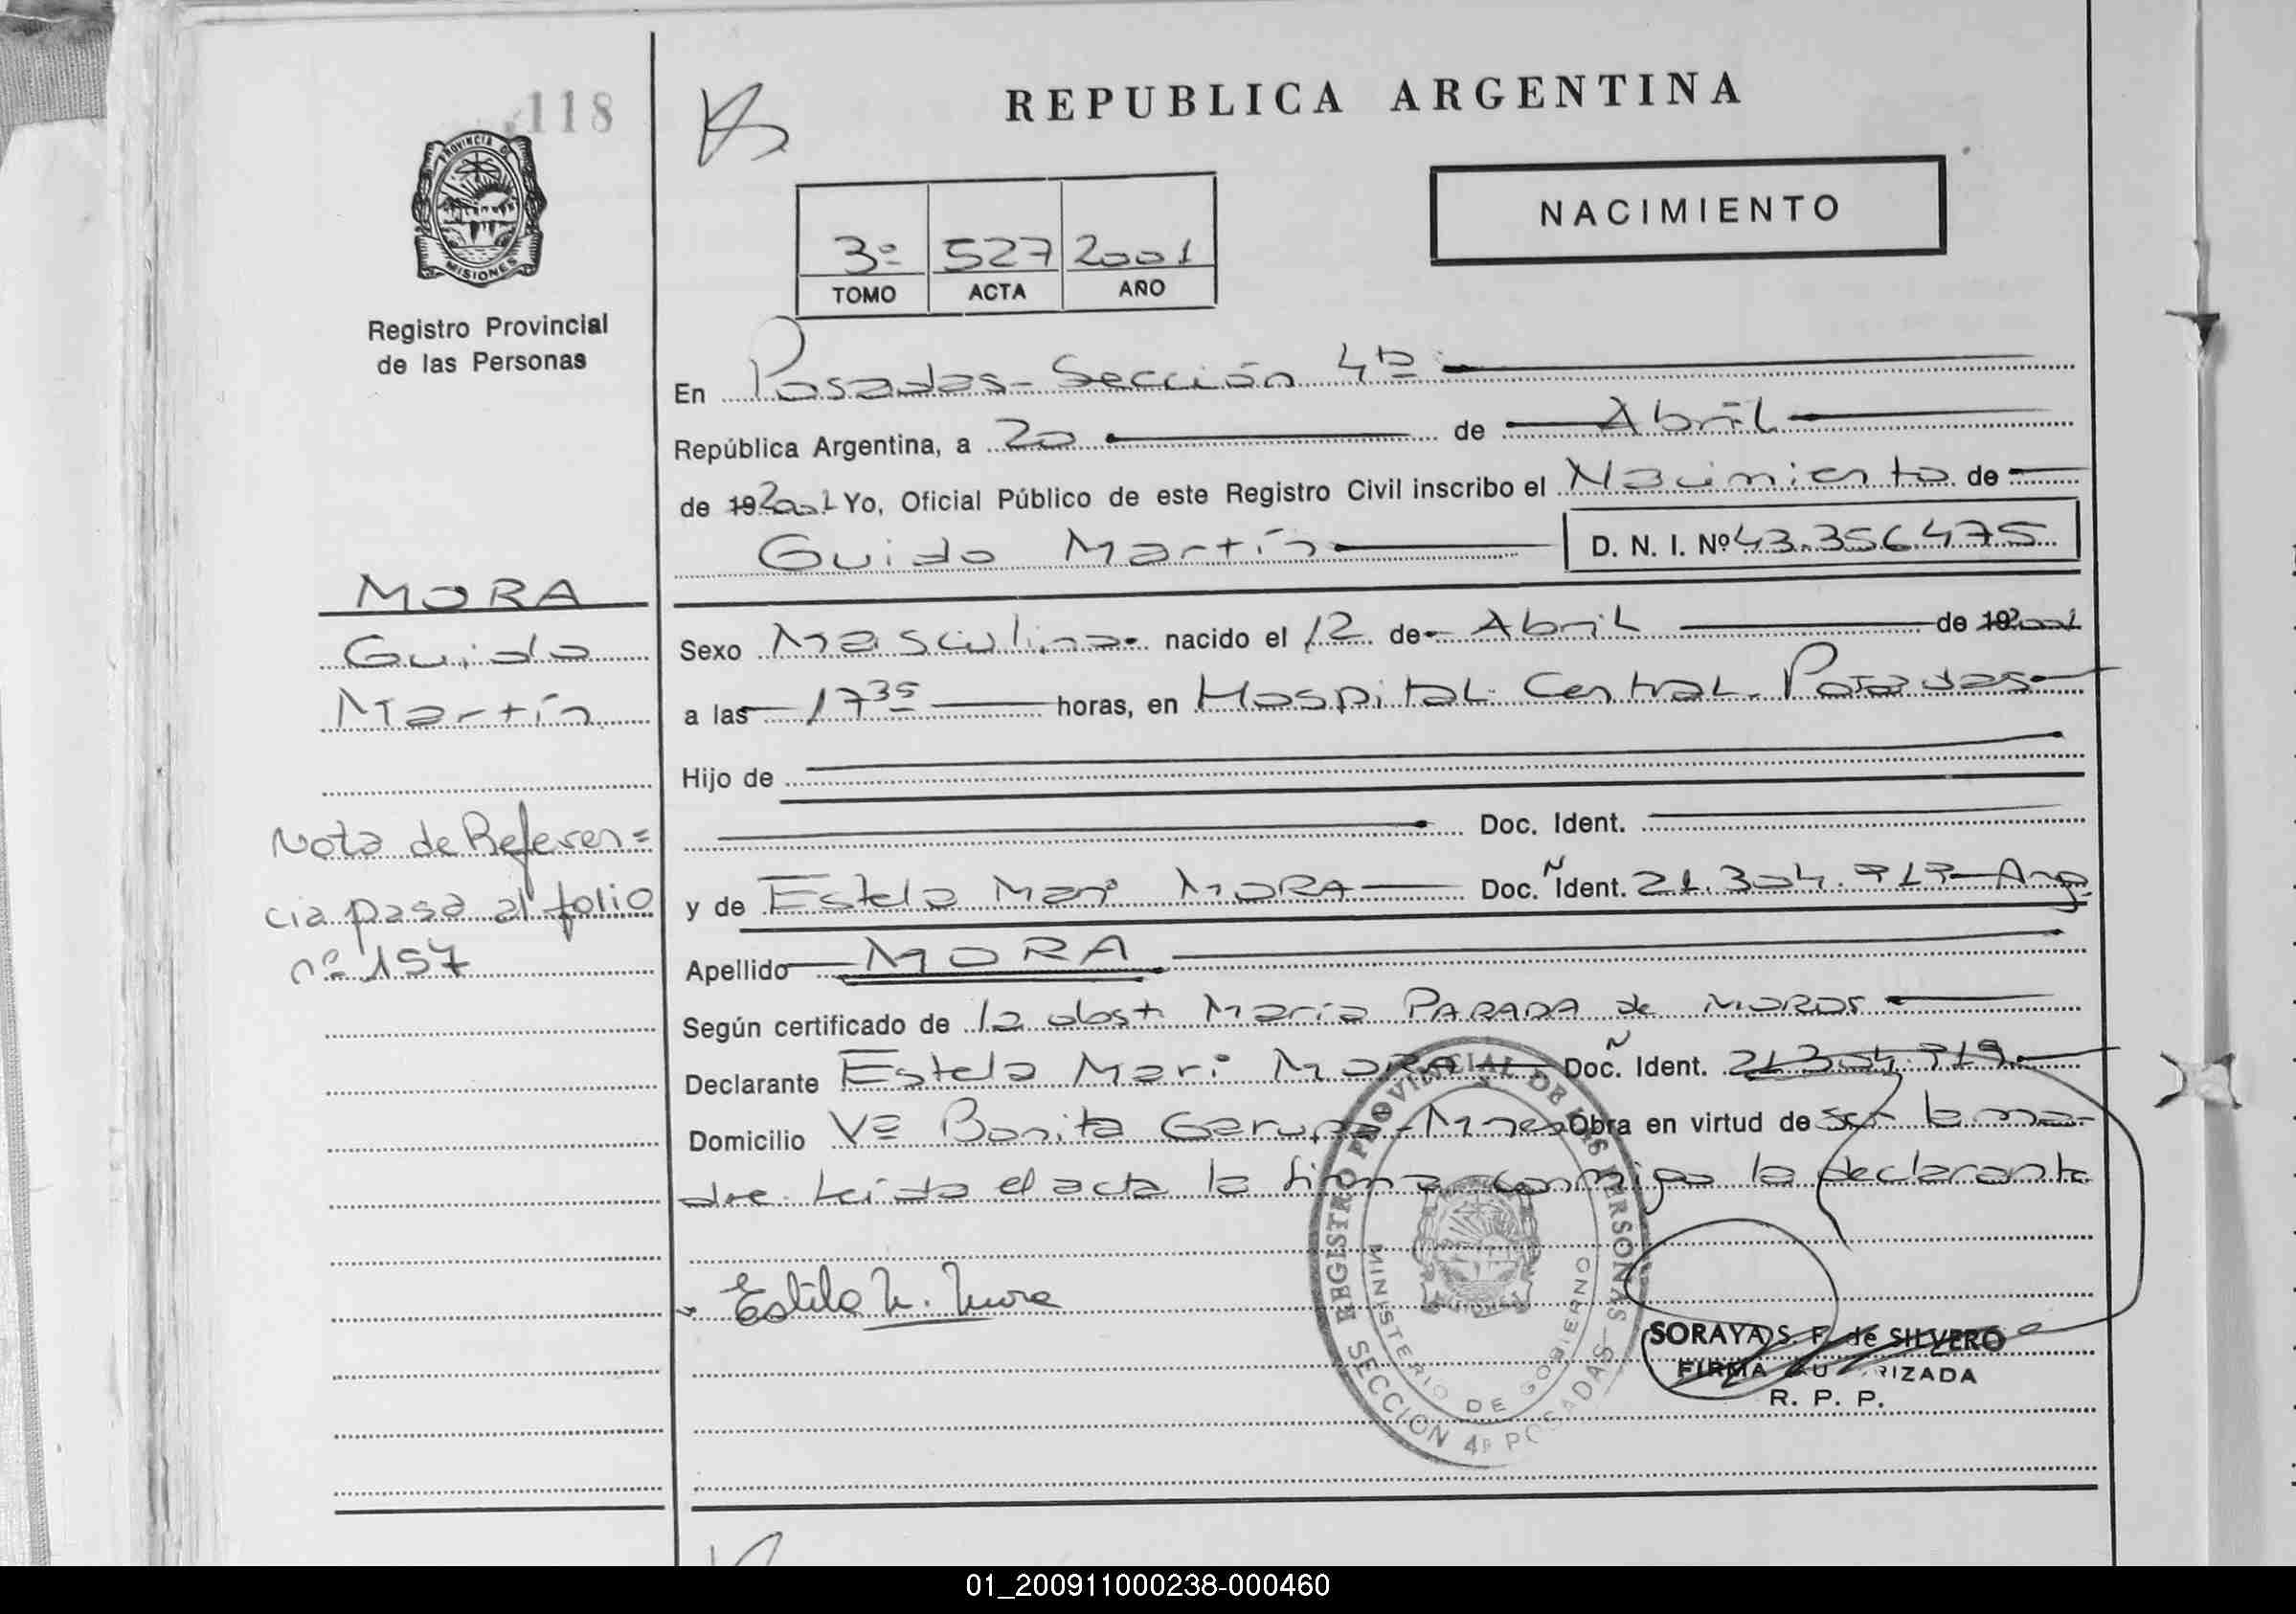 118
REPUBLICA ARGENTINA
PROVINCIA DE
MISIONES
NACIMIENTO
3º 527 2001
TOMO ACTA AÑO
Registro Provincial
de las Personas
En Posadas - Sección 4ª
República Argentina, a 20 de Abril
de 19 2001 Yo, Oficial Público de este Registro Civil inscribo el Nacimiento de
Guido Martín D. N. I. Nº 43.356.475
MORA
Guido
Martín
Sexo Masculino nacido el 12 de Abril de 19 2001
a las 17 35 horas, en Hospital Central Posadas
Hijo de
Doc. Ident.
Nota de Referen=
cia pasa al folio
nº 157
y de Estela Mari MORA Doc. Ident. 21.304. Arg.
Apellido MORA
Según certificado de la obst. María PARADA de
Declarante Estela Mari MORA Doc. Ident. 21.304.
Domicilio Vª Bonita Garupá - Mnes Obra en virtud de ser la ma-
dre. Leída el acta la firma conmigo la declarante
Estela M. Mora
REGISTRO PROVINCIAL DE LAS PERSONAS
MINISTERIO DE GOBIERNO
SECCION 4ª POSADAS
SORAYA S. F. de SILVERO
FIRMA AUTORIZADA
R. P. P.
01_200911000238-000460